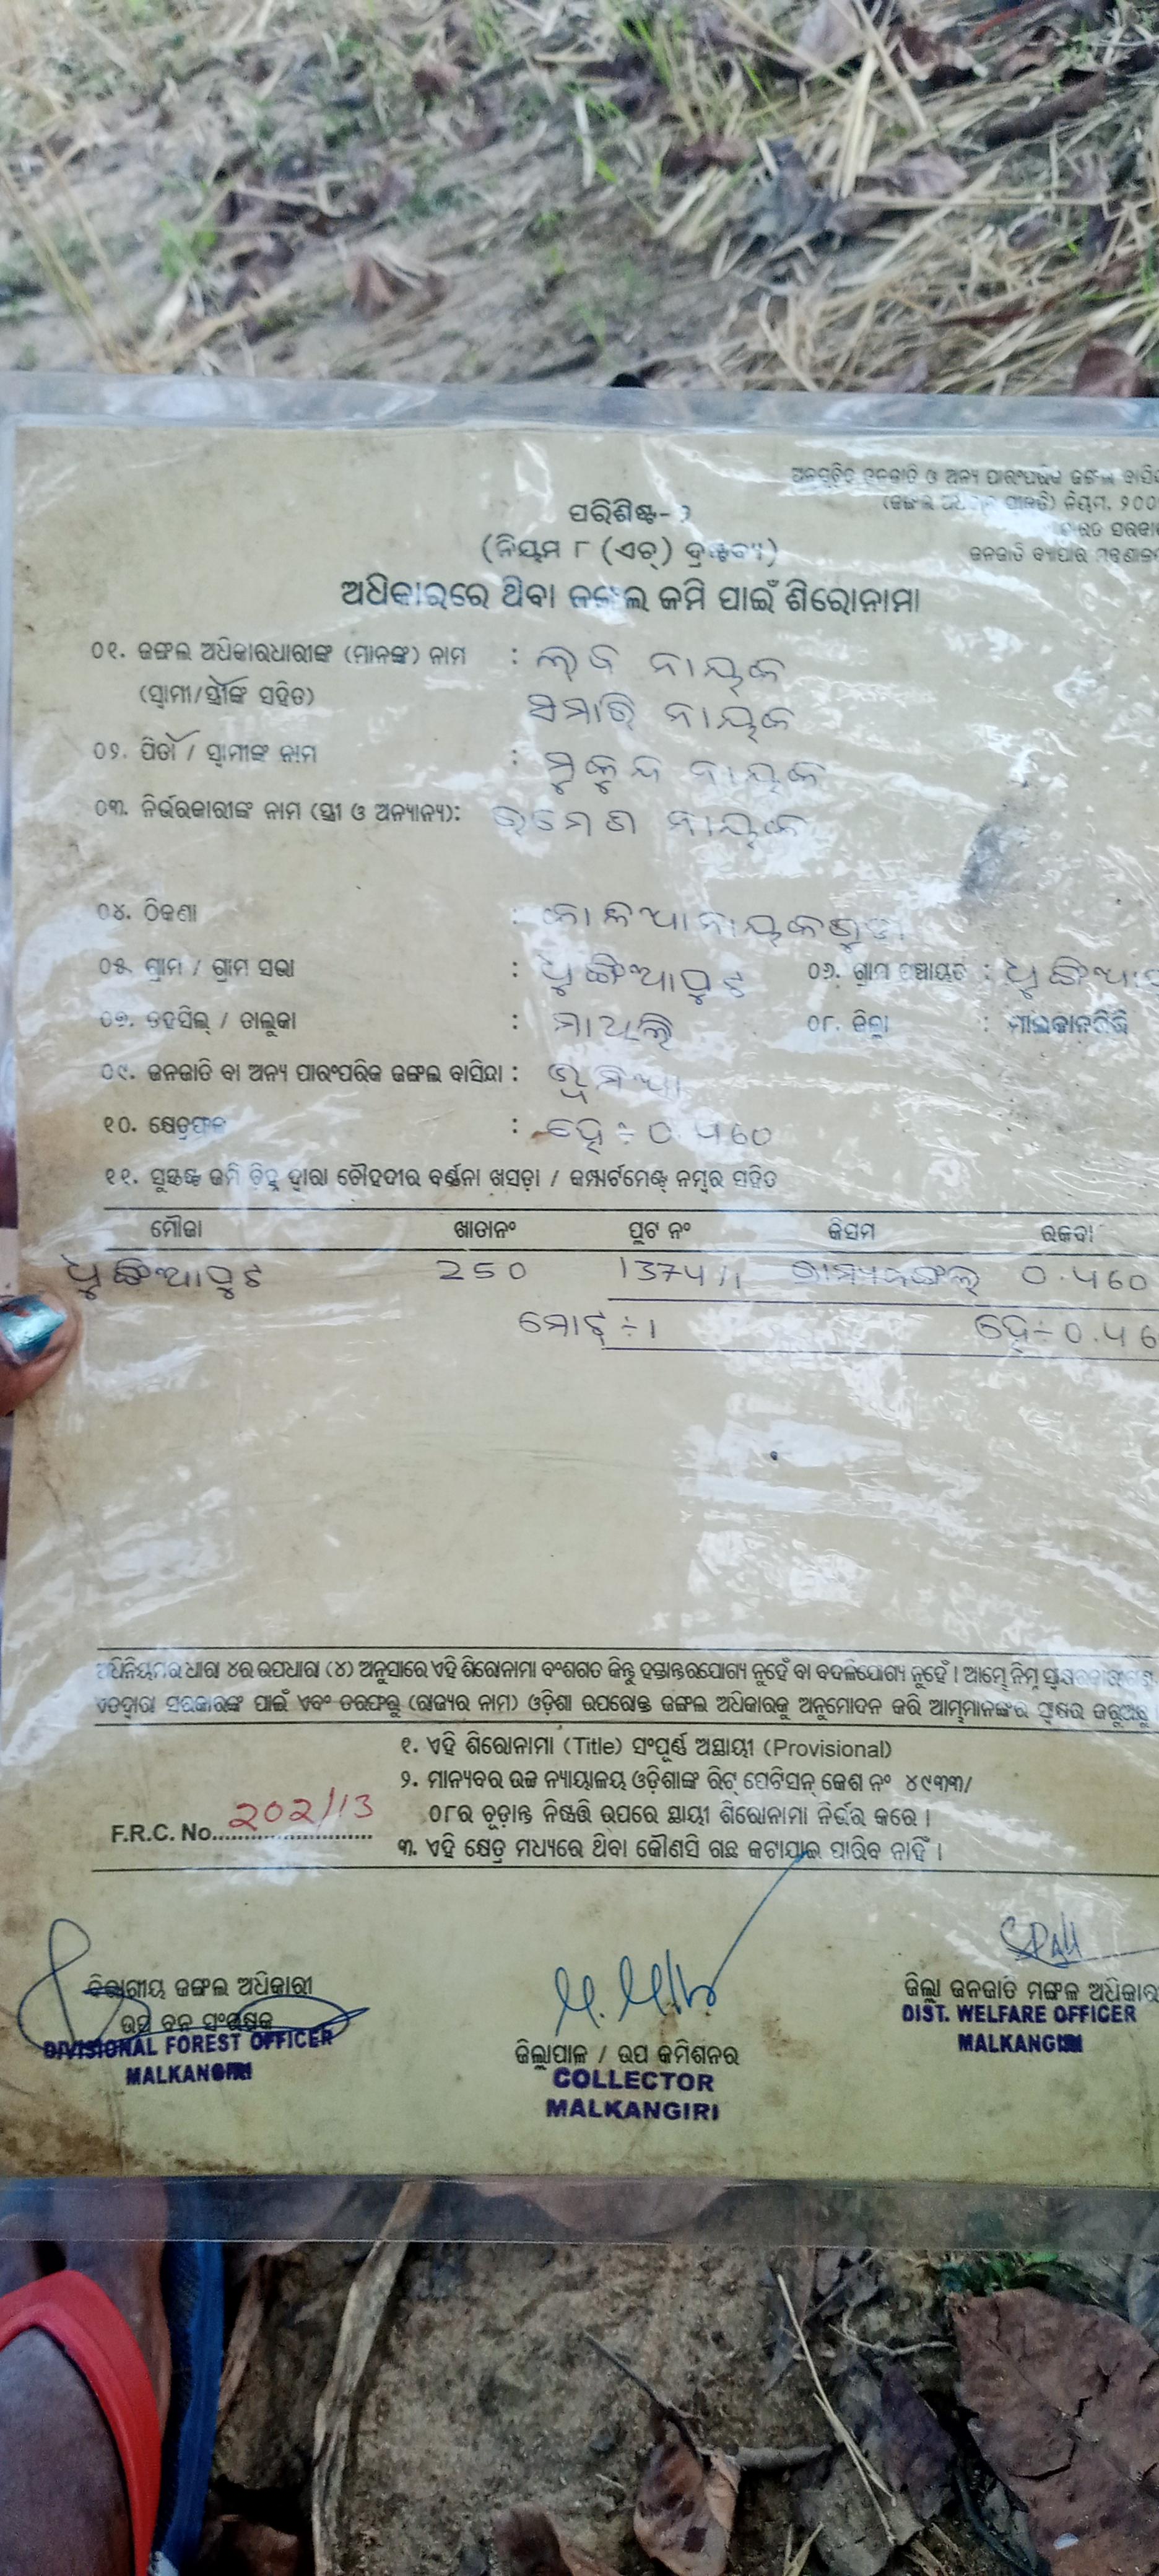 ଅନୁସୂଚିତ ଜନଜାତି ଓ ଅନ୍ୟ ପାରଂପରିକ ଜଙ୍ଗଲ ବାସିନ୍ଦା
(ଜଙ୍ଗଲ ଅଧିକାର ସ୍ୱୀକୃତି) ନିୟମ, ୨୦୦
ଭାରତ ସରକାର
ଜନଜାତି ବ୍ୟାପାର ମନ୍ତ୍ରଣାଳୟ
ପରିଶିଷ୍ଟ-
(ନିୟମ ୮ (ଏଚ୍) ଦ୍ରଷ୍ଟବ୍ୟ)
ଅଧିକାରରେ ଥିବା ଜଙ୍ଗଲ ଜମି ପାଇଁ ଶିରୋନାମା
୦୧. ଜଙ୍ଗଲ ଅଧିକାରଧାରୀଙ୍କ (ମାନଙ୍କ) ନାମ : ନାୟକ
(ସ୍ୱାମୀ/ସ୍ତ୍ରୀଙ୍କ ସହିତ) ସମାରି ନାୟକ
୦୨. ପିତା / ସ୍ୱାମୀଙ୍କ ନାମ : ମୁକୁନ୍ଦ ନାୟକ
୦୩. ନିର୍ଭରକାରୀଙ୍କ ନାମ (ସ୍ତ୍ରୀ ଓ ଅନ୍ୟାନ୍ୟ): ନାୟକ
୦୪. ଠିକଣା :
୦୫. ଗ୍ରାମ / ଗ୍ରାମ ସଭା : ଧୁଙ୍ଗିଆପୁଟ ୦୬. ଗ୍ରାମ ପଞ୍ଚାୟତ :
୦୭. ତହସିଲ୍ / ତାଲୁକା : ମାଥିଲି ୦୮. ଜିଲ୍ଲା : ମାଲକାନଗିରି
୦୯. ଜନଜାତି ବା ଅନ୍ୟ ପାରଂପରିକ ଜଙ୍ଗଲ ବାସିନ୍ଦା : ଭୂମିଆ
୧୦. କ୍ଷେତ୍ରଫଳ : ହେ÷0.460
୧୧. ସୁସ୍ପଷ୍ଟ ଜମି ଚିହ୍ନ ଦ୍ୱାରା ଚୌହଦୀର ବର୍ଣ୍ଣନା ଖସଡ଼ା / କମ୍ପାର୍ଟମେଣ୍ଟ୍ ନମ୍ବର ସହିତ
ମୌଜା ଖାତାନଂ ପ୍ଲଟ ନଂ କିସମ ରକବା
ଧୁଙ୍ଗିଆପୁଟ 250 1374/1 ଗ୍ରାମ୍ୟଜଙ୍ଗଲ୍ 0.460
ମୋଟ୍ ÷ 1 ହେ÷0.46
ଅଧିନିୟମର ଧାରା ୪ର ଉପଧାରା (୪) ଅନୁସାରେ ଏହି ଶିରୋନାମା ବଂଶଗତ କିନ୍ତୁ ହସ୍ତାନ୍ତରଯୋଗ୍ୟ ନୁହେଁ ବା ବଦଳିଯୋଗ୍ୟ ନୁହେଁ । ଆମ୍ଭେ ନିମ୍ନ ସ୍ୱାକ୍ଷରକାରୀଗଣ
ଏତଦ୍ୱାରା ସରକାରଙ୍କ ପାଇଁ ଏବଂ ତରଫରୁ (ରାଜ୍ୟର ନାମ) ଓଡ଼ିଶା ଉପରୋକ୍ତ ଜଙ୍ଗଲ ଅଧିକାରକୁ ଅନୁମୋଦନ କରି ଆମ୍ଭମାନଙ୍କର ସ୍ୱାକ୍ଷର କରୁଅଛୁ
୧. ଏହି ଶିରୋନାମା (Title) ସଂପୂର୍ଣ୍ଣ ଅସ୍ଥାୟୀ (Provisional)
୨. ମାନ୍ୟବର ଉଚ୍ଚ ନ୍ୟାୟାଳୟ ଓଡ଼ିଶାଙ୍କ ରିଟ୍ ପେଟିସନ୍ କେଶ ନଂ ୪୯୩୩/
୦୮ର ଚୂଡ଼ାନ୍ତ ନିଷ୍ପତ୍ତି ଉପରେ ସ୍ଥାୟୀ ଶିରୋନାମା ନିର୍ଭର କରେ ।
F.R.C. No. 202/13
୩. ଏହି କ୍ଷେତ୍ର ମଧ୍ୟରେ ଥିବା କୌଣସି ଗଛ କଟାଯାଇ ପାରିବ ନାହିଁ ।
ବିଭାଗୀୟ ଜଙ୍ଗଲ ଅଧିକାରୀ
ଉପ ବନ ସଂରକ୍ଷକ
DIVISIONAL FOREST OFFICER
MALKANGIRI
ଜିଲ୍ଲାପାଳ / ଉପ କମିଶନର
COLLECTOR
MALKANGIRI
ଜିଲ୍ଲା ଜନଜାତି ମଙ୍ଗଳ ଅଧିକାରୀ
DIST. WELFARE OFFICER
MALKANGIRI